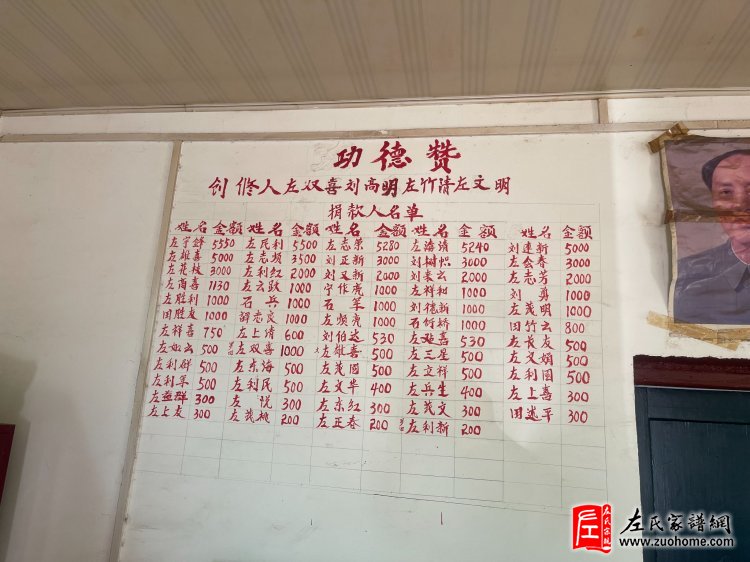 功德赞
创修人左双喜刘高明左竹清左文明
捐款人名单
姓名 金额 姓名 金额 姓名 金额 姓名 金额 姓名 金额
左宇锋 5550 左民利 5500 左志荣 5280 左海靖 5240 刘建新 5000
左雄喜 5000 左志频 3500 刘正新 3000 刘树帜 3000 左会春 3000
左花枝 3000 左利红 2000 刘又新 2000 刘来云 2000 左志芳 2000
左商喜 1130 左云跃 1000 宁作虎 1000 左祥和 1000 刘勇 1000
左胜利 1000 石兵 1000 石军 1000 刘德新 1000 左茂明 1000
田胜友 1000 胡志良 1000 左频虎 1000 石竹娇 1000 田竹云 800
左祥喜 750 左上清 600 刘伯达 530 左 530 左长友 500
左如云 500 左双喜 1000 左雄喜 500 左三星 500 左文娟 500
左利群 500 左东海 500 左茂国 500 左立祥 500 左利国 500
左利军 500 左利民 500 左文华 400 左兵生 400 左上喜 300
左孟群 300 左悦 300 左东红 300 左茂文 300 田建平 300
左上友 300 左茂 200 左正春 200 左利新 200
左氏家谱
左氏家譜網
www.zuohome.com